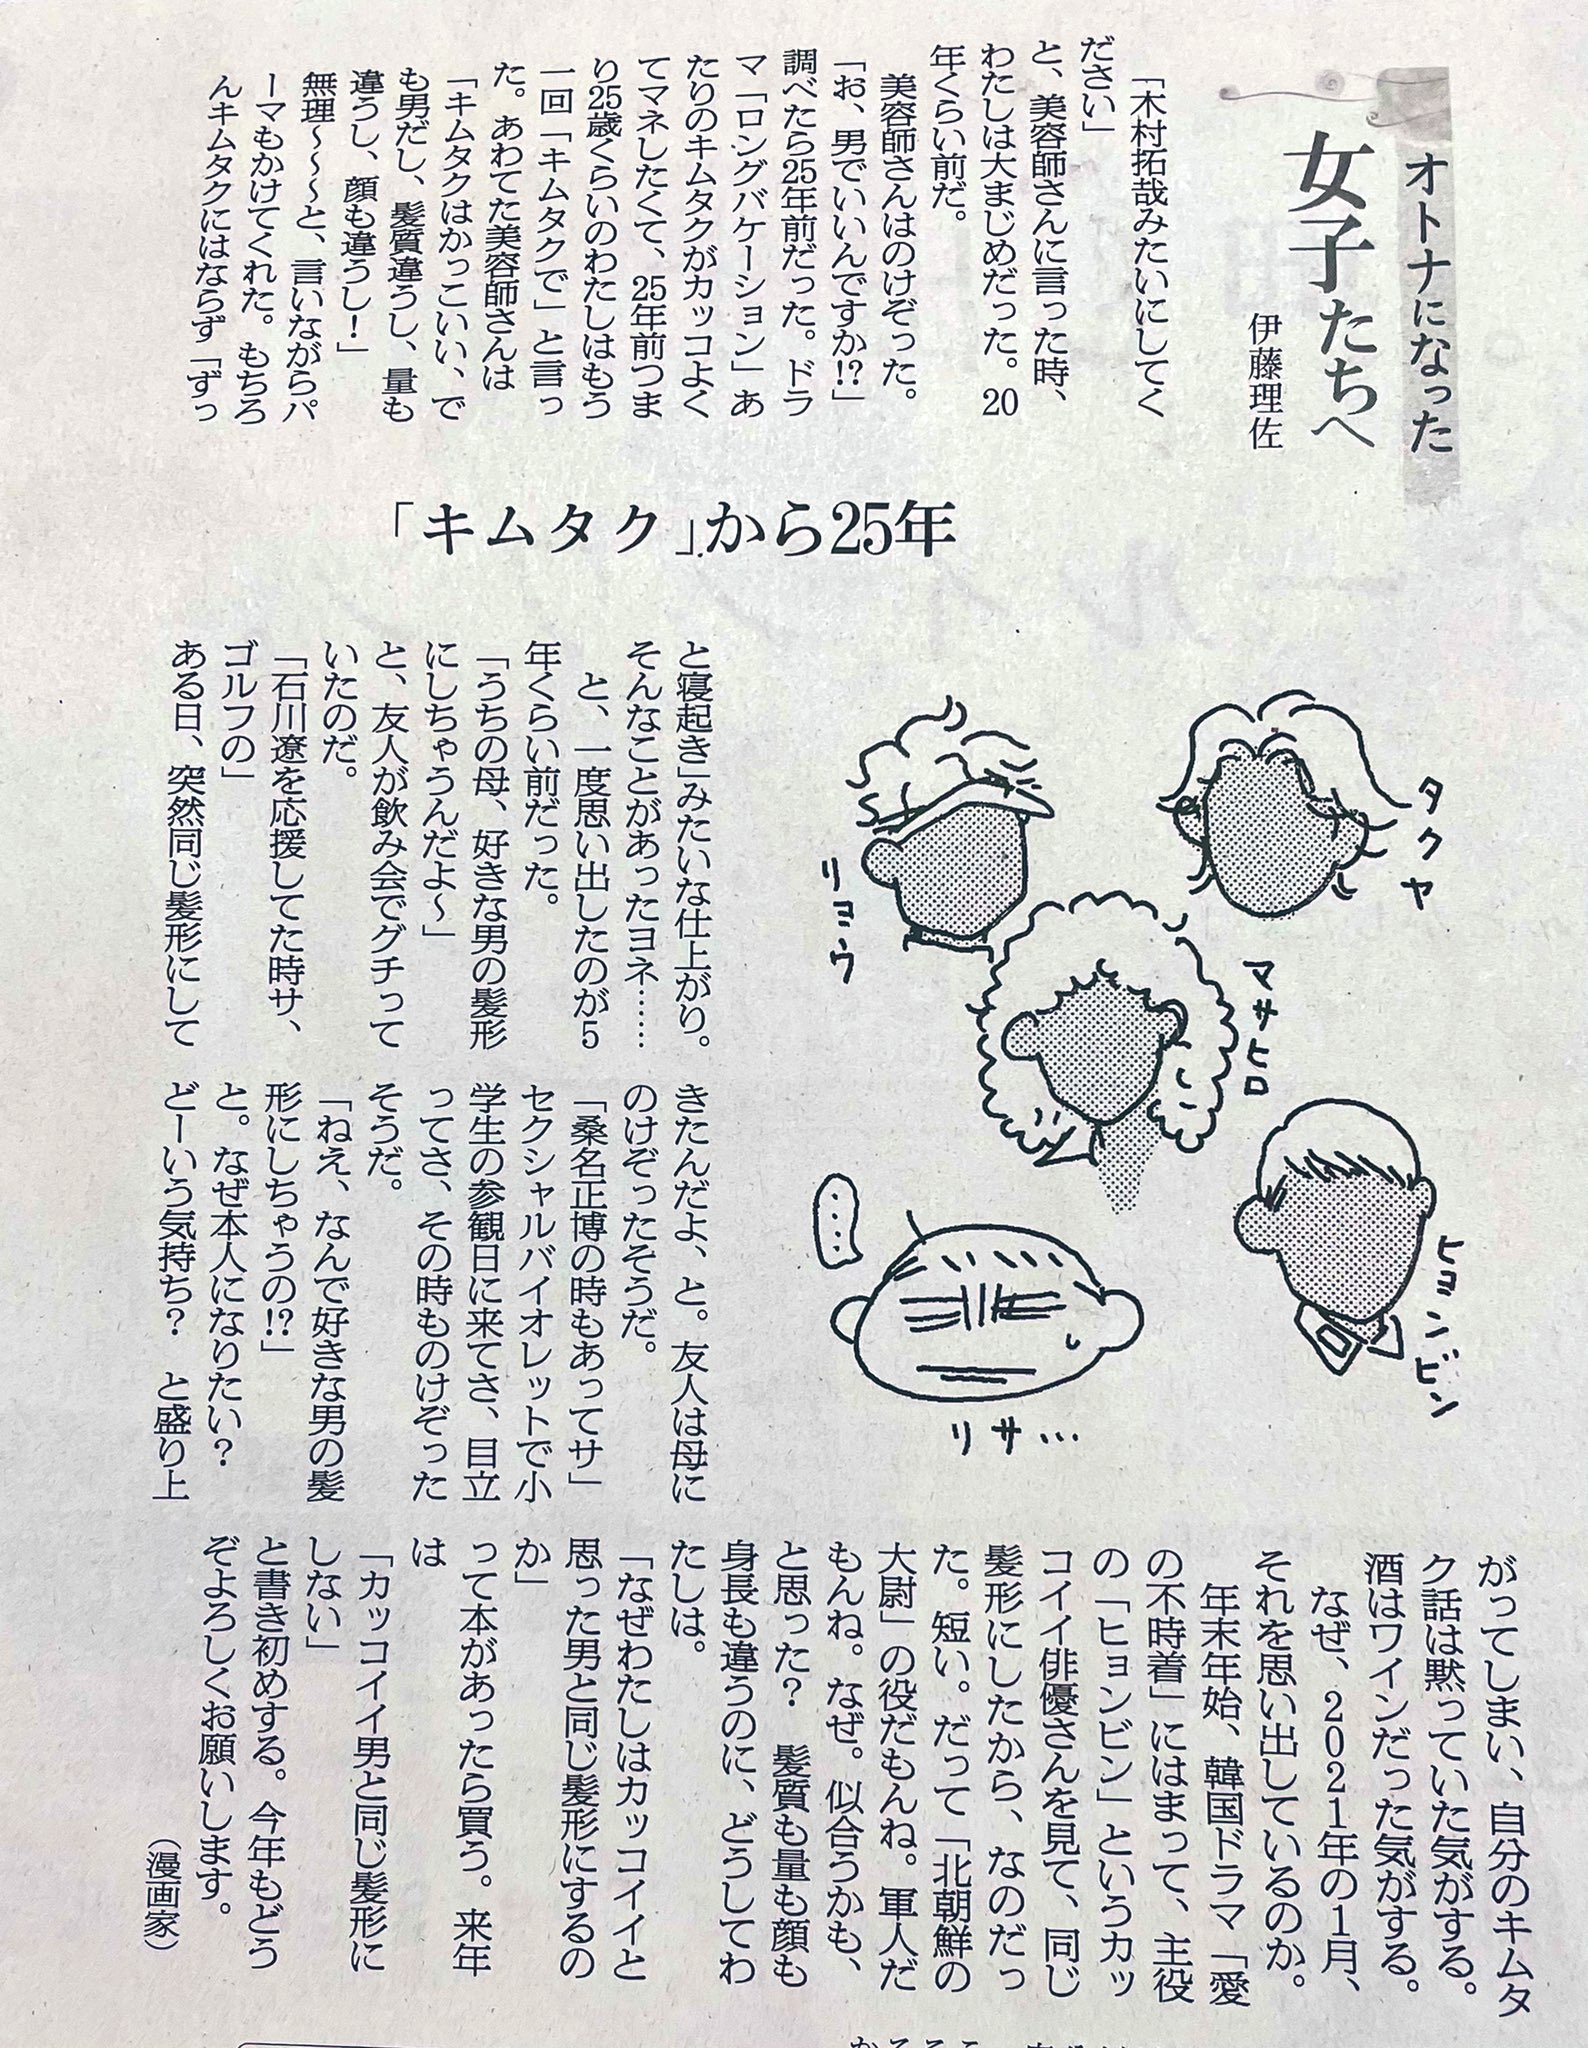 オトナになった
女子たちへ
伊藤理佐
「木村拓哉みたいにしてく
ださい」
と、美容師さんに言った時、
わたしは大まじめだった。20
年くらい前だ。
美容師さんはのけぞった。
「お、男でいいんですか!?」
調べたら25年前だった。ドラ
マ「ロングバケーション」あ
たりのキムタクがカッコよく
てマネしたくて、25年前つま
り25歳くらいのわたしはもう
一回「キムタクで」と言っ
た。あわてた美容師さんは
「キムタクはかっこいい、で
も男だし、髪質違うし、量も
違うし、顔も違うし！」
無理〜〜〜と、言いながらパ
ーマもかけてくれた。もちろ
んキムタクにはならず「ずっ
「キムタク」から25年
と寝起き」みたいな仕上がり。
そんなことがあったヨネ……
と、一度思い出したのが５
年くらい前だった。
「うちの母、好きな男の髪形
にしちゃうんだよ〜」
と、友人が飲み会でグチって
いたのだ。
「石川遼を応援してた時サ、
ゴルフの」
ある日、突然同じ髪形にして
きたんだよ、と。友人は母に
のけぞったそうだ。
「桑名正博の時もあってサ」
セクシャルバイオレットで小
学生の参観日に来てさ、目立
ってさ、その時ものけぞった
そうだ。
「ねえ、なんで好きな男の髪
形にしちゃうの!?」
と。なぜ本人になりたい？
どーいう気持ち？　と盛り上
がってしまい、自分のキムタ
ク話は黙っていた気がする。
酒はワインだった気がする。
なぜ、2021年の1月、
それを思い出しているのか。
年末年始、韓国ドラマ「愛
の不時着」にはまって、主役
の「ヒョンビン」というカッ
コイイ俳優さんを見て、同じ
髪形にしたから、なのだっ
た。短い。だって「北朝鮮の
大尉」の役だもんね。軍人だ
もんね。なぜ。似合うかも、
と思った？　髪質も量も顔も
身長も違うのに、どうしてわ
たしは。
「なぜわたしはカッコイイと
思った男と同じ髪形にするの
か」
って本があったら買う。来年
は
「カッコイイ男と同じ髪形に
しない」
と書き初めする。今年もどう
ぞよろしくお願いします。
（漫画家）
タクヤ
リョウ
マサヒロ
ヒョンビン
……
リサ…